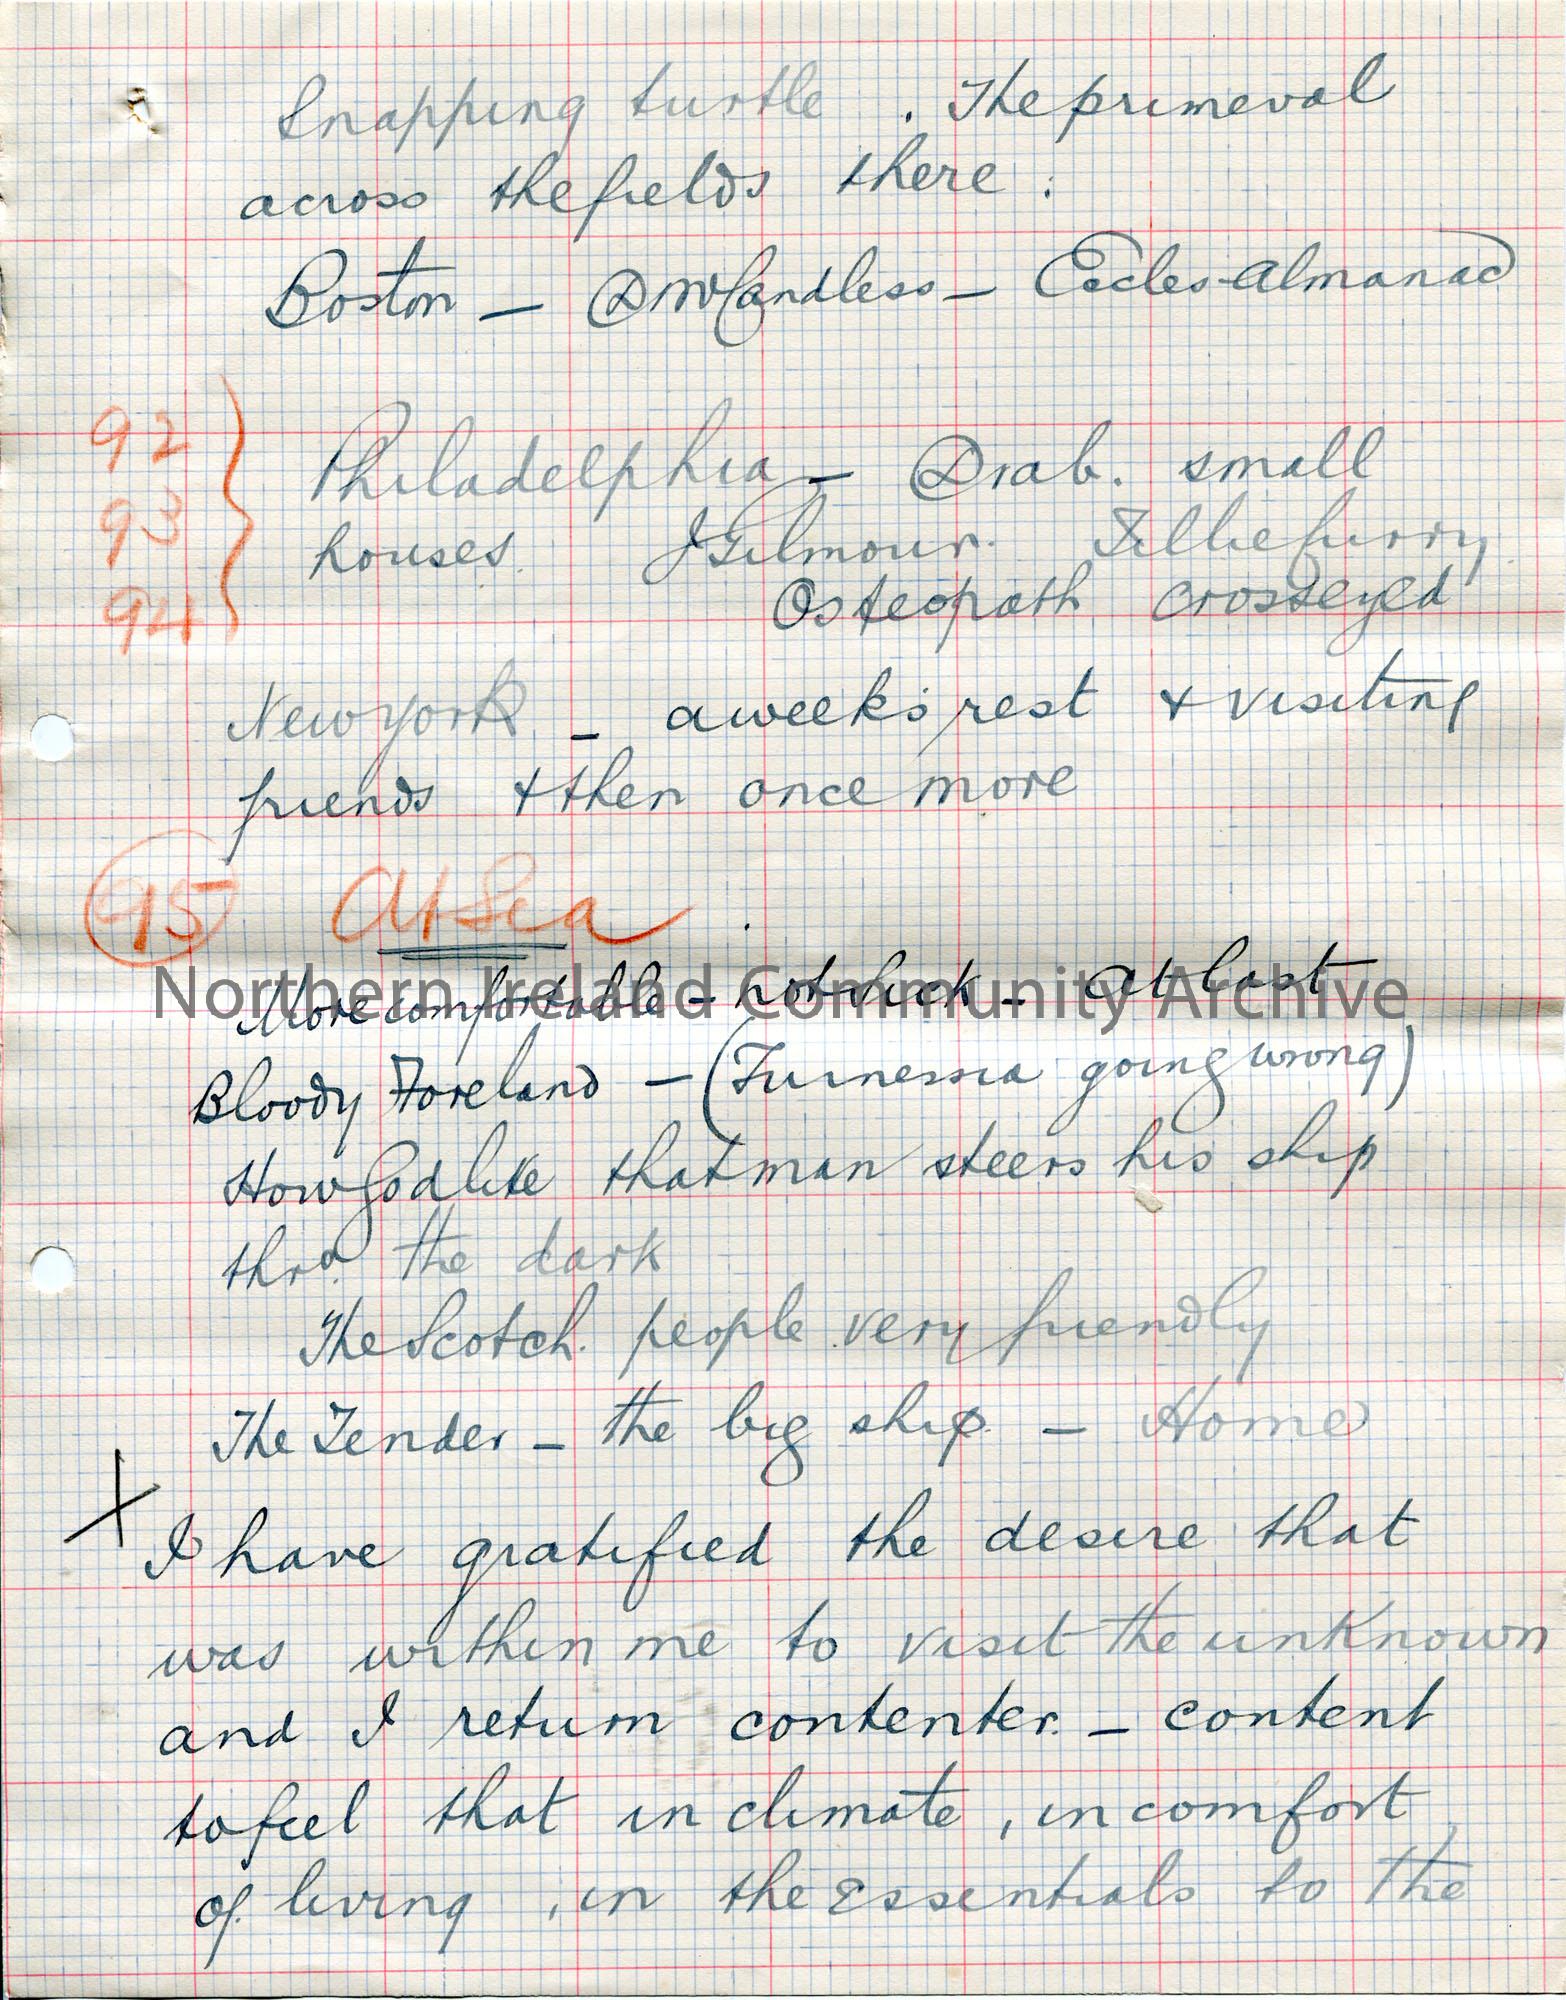 Snapping turtle. The primeval
across the fields there:
Boston – Eccles Almanac
92
93
94
Philadelphia – Drab. small
houses. J Gilmour.
Osteopath crosseyed
New York – a week's rest & visiting
friends & then once more
95 At Sea
More comfortable – not sick – At last
Northern Ireland Community Archive
Bloody Foreland – (Furnessia going wrong)
How Godlike that man steers his ship
thro the dark
The Scotch. people very friendly
The Tender – the big ship. – Home
X
I have gratified the desire that
was within me to visit the unknown
and I return contenter. – content
to feel that in climate, in comfort
of living, in the Essentials to the